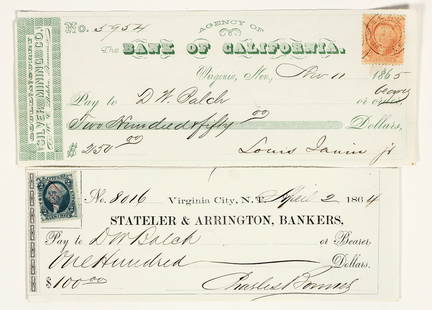 No. 5954
AGENCY OF
The BANK OF CALIFORNIA.
Virginia, Nev, Nov 11 1865
Pay to D W Balch or order bearer
Two Hundred & fifty 00 Dollars,
$250 00
Louis Janin Jr
SILVER MINING CO.
No. 8016 Virginia City, N.T. April 2 1864
STATELER & ARRINGTON, BANKERS.
Pay to D W Balch or Bearer
One Hundred Dollars.
$100 00 Charles Bonner